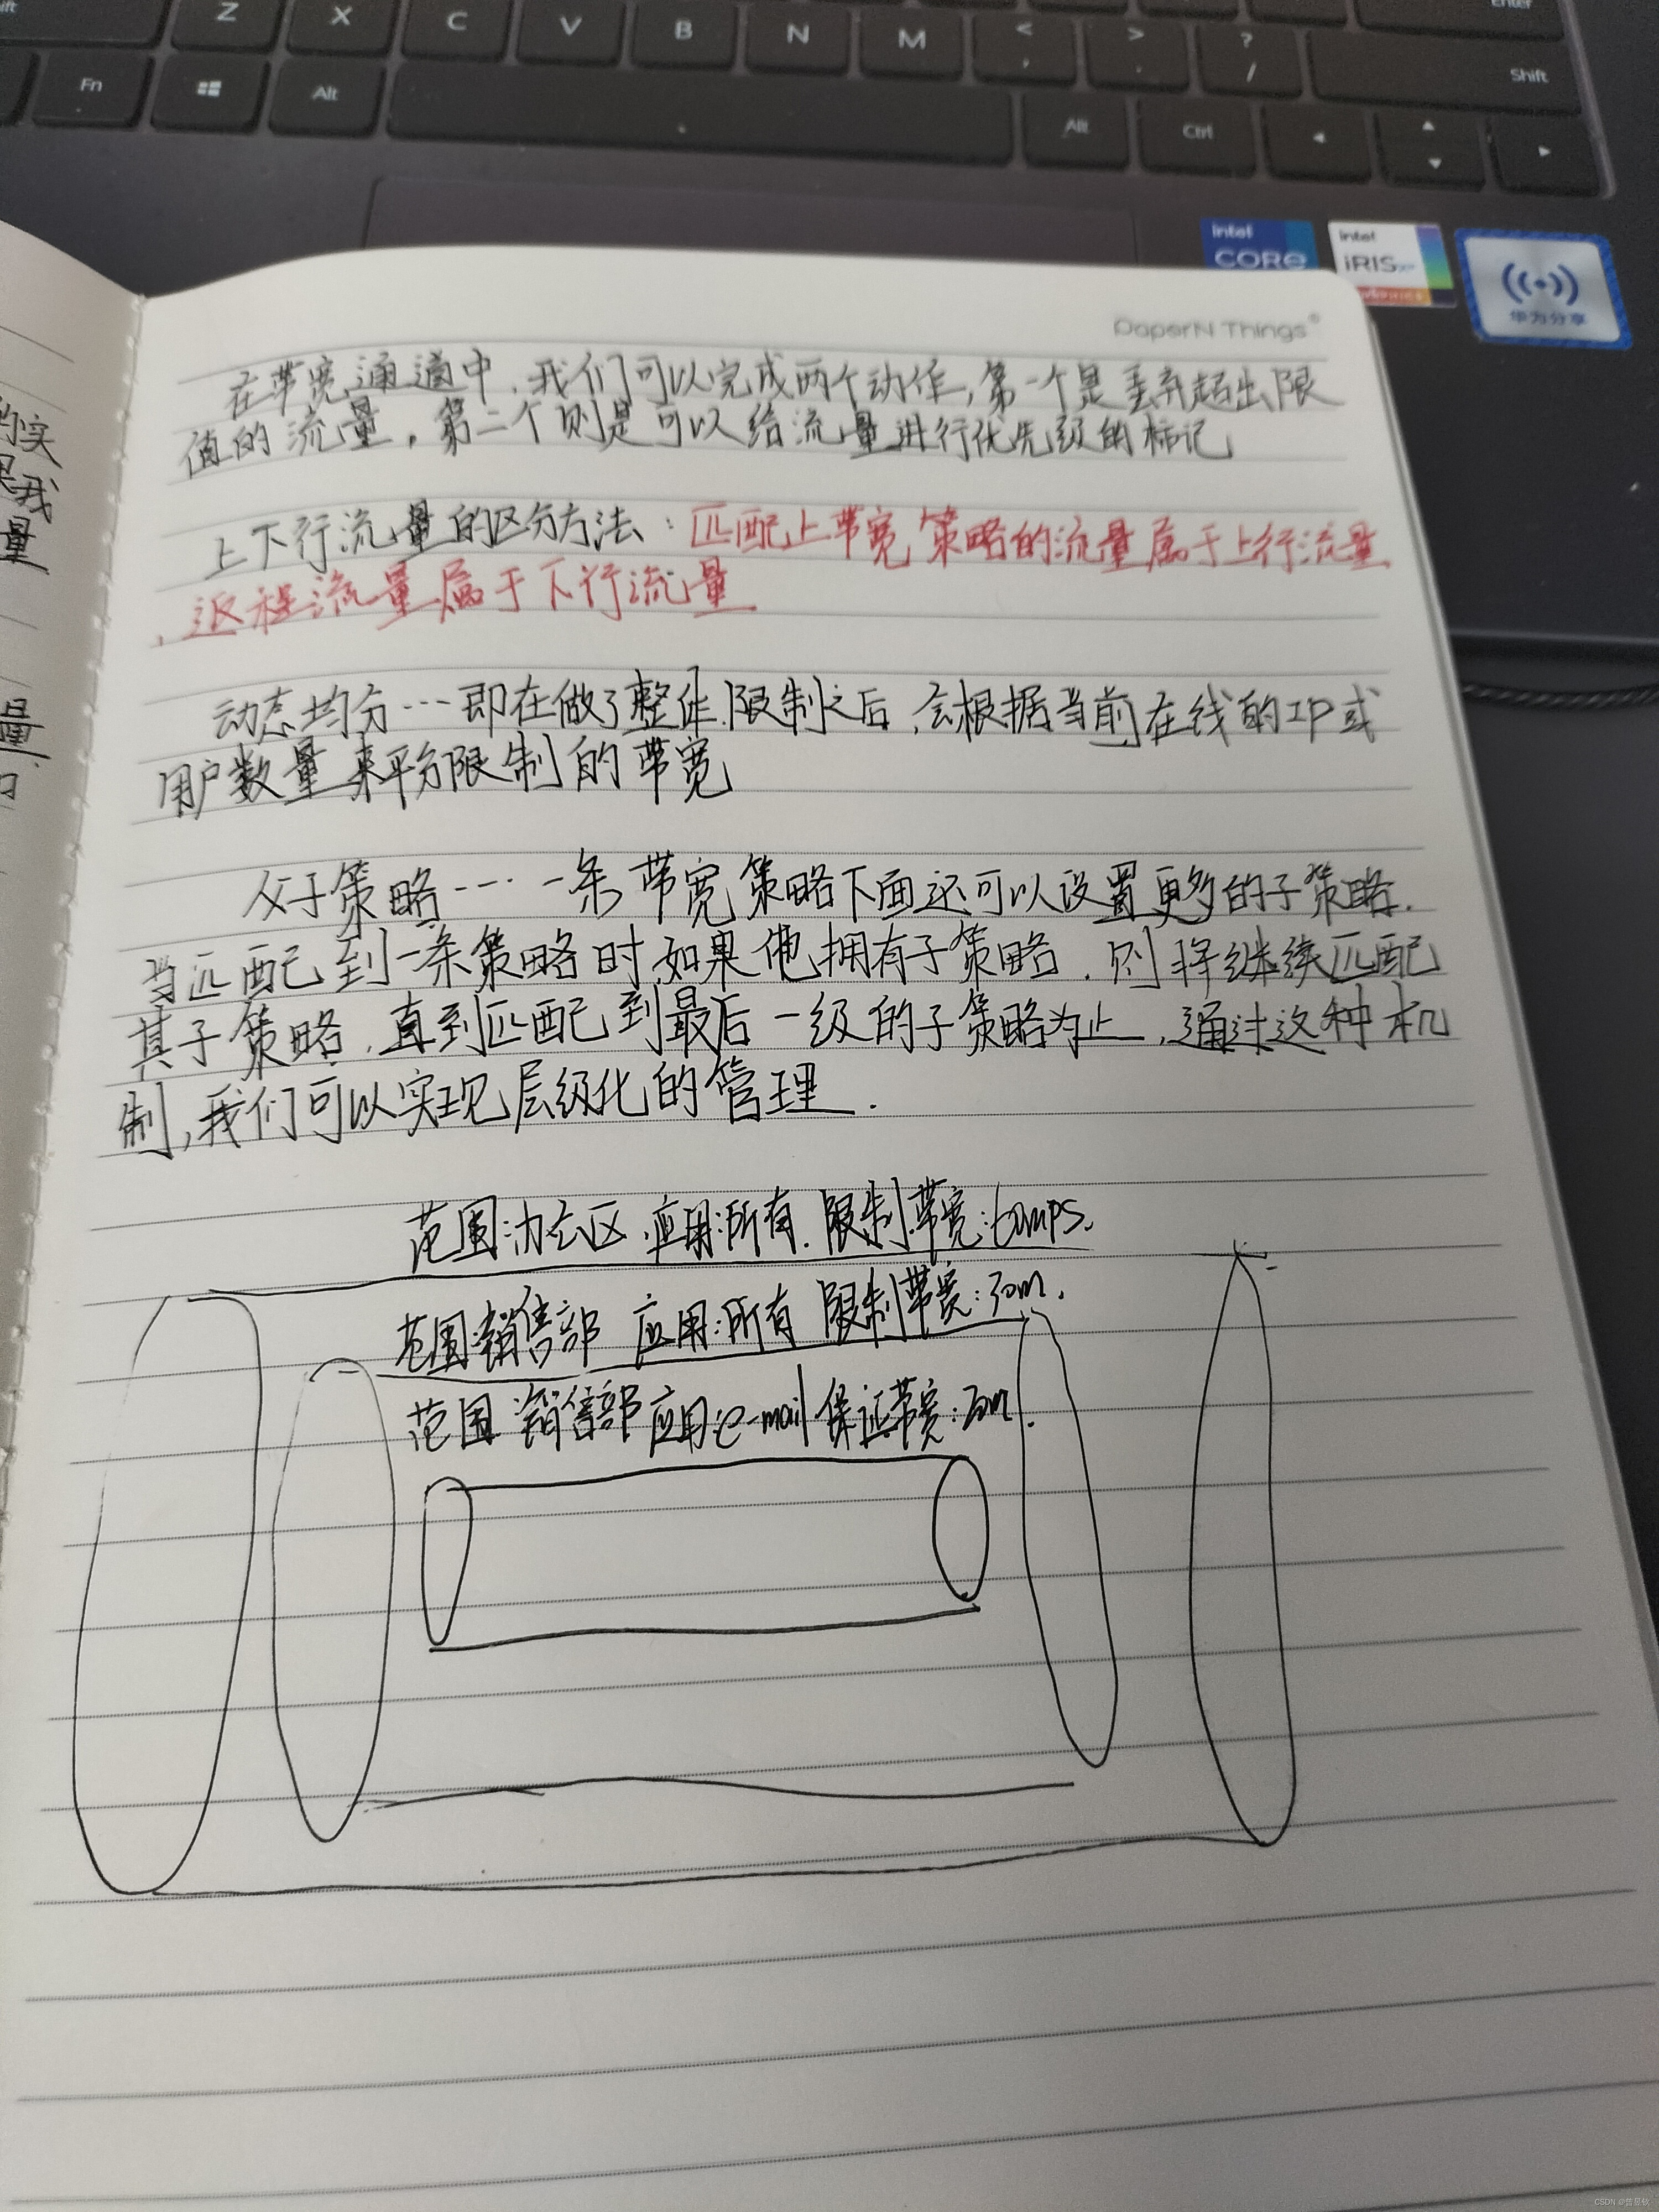 Z X C V B N M < , > . ? / Shift
Fn Alt Alt Ctrl
intel CORe
intel iRIS xe
华为分享
PaperN Things®
在带宽通道中,我们可以完成两个动作,第一个是丢弃超出限
值的流量,第二个则是可以给流量进行优先级的标记
上下行流量的区分方法:匹配上带宽策略的流量属于上行流量
,返程流量属于下行流量
动态均分---即在做了整体限制之后,会根据当前在线的IP或
用户数量来平分限制的带宽
父子策略---- 一条带宽策略下面还可以设置更多的子策略.
当匹配到一条策略时,如果他拥有子策略,则将继续匹配
其子策略,直到匹配到最后一级的子策略为止,通过这种机
制,我们可以实现层级化的管理.
范围:办公区 应用:所有 限制带宽:
范围:销售部 应用:所有 限制带宽:
范围 销售部 应用:e-mail 保证带宽:
的实
我
量
量
CSDN